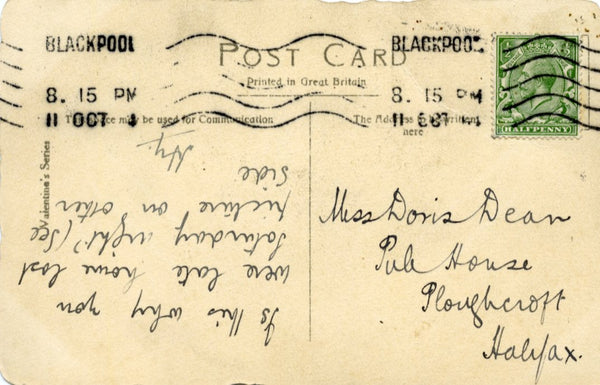 BLACKPOOL
8. 15 PM
11 OCT
BLACKPOOL
8. 15 PM
11 OCT
POST CARD
Printed in Great Britain
space may be used for Communication
The Address to be Written
here
Valentine's Series
HALFPENNY
Is this why you
were late home last
Saturday night? (See
picture on other
side
Hy.
Miss Doris Dean
Pule House
Ploughcroft
Halifax.